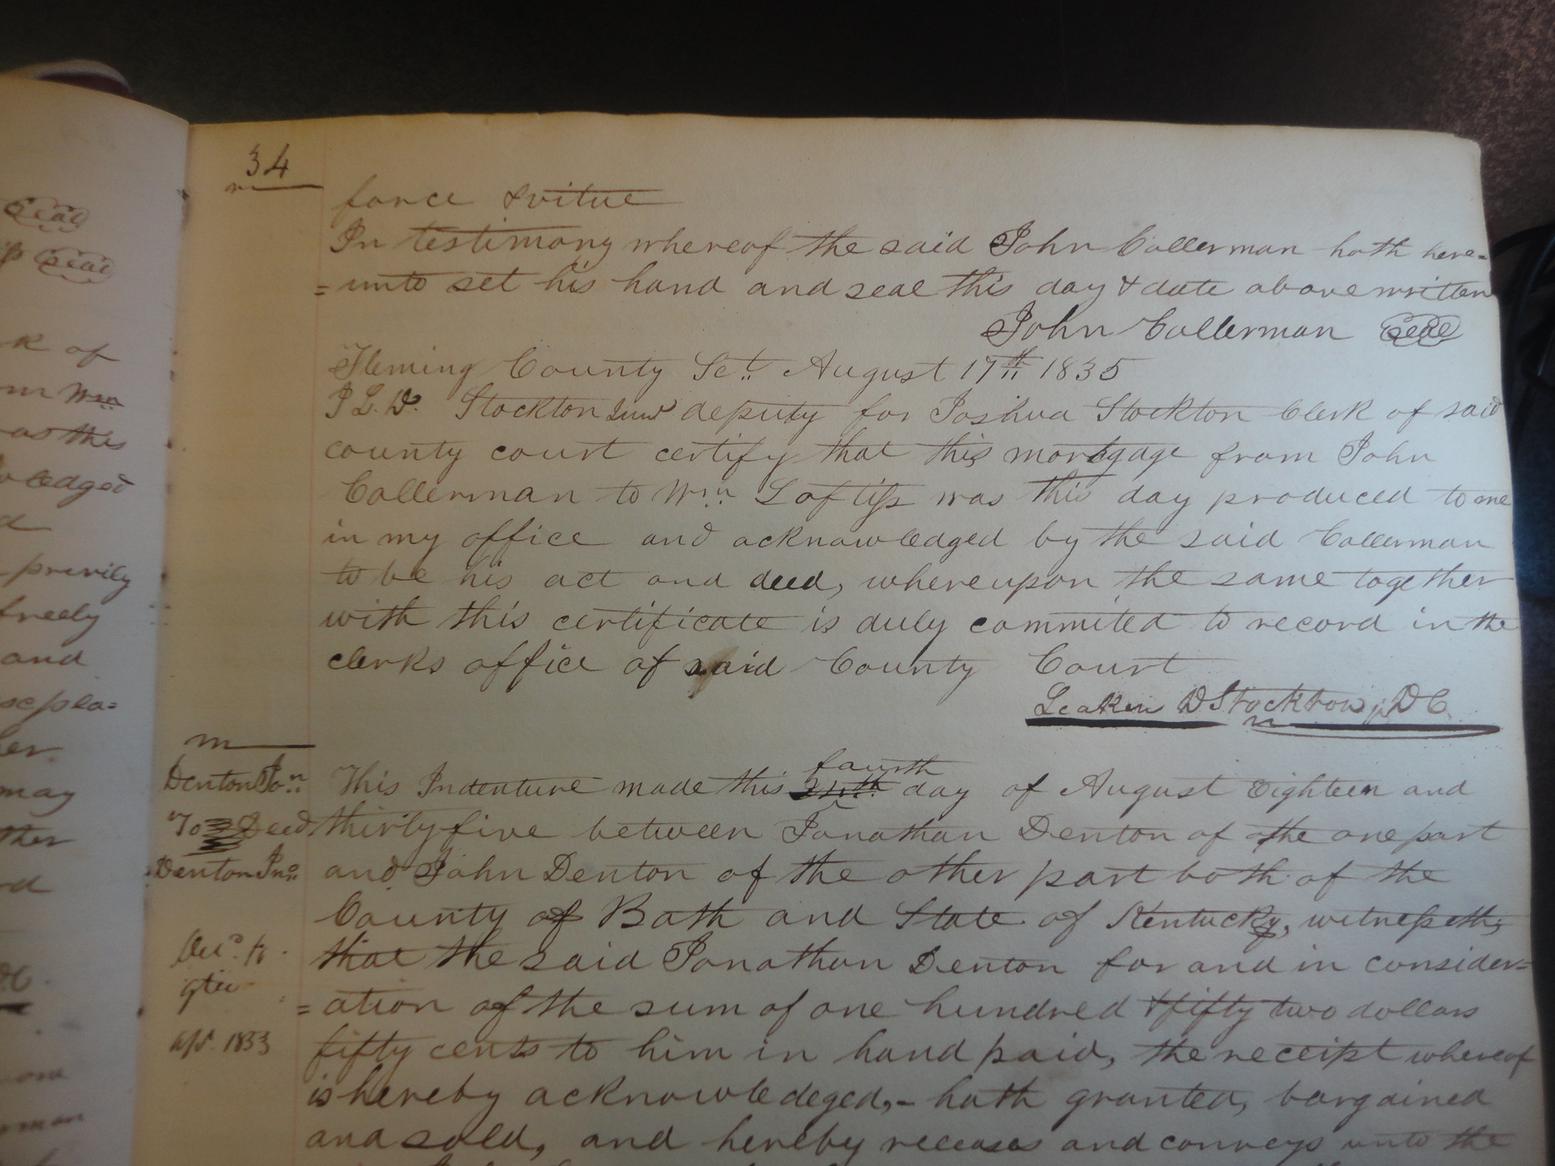 34
force & vitue
In testimony whereof the said John Collerman hath here=
=unto set his hand and seal this day & date above written
John Collerman Seal
Fleming County Sct. August 17th 1835
I L. D. Stockton Junr deputy for Joshua Stockton Clerk of said
county court certify that this mortgage from John
Collerman to Wm Loftiss was this day produced to me
in my office and acknowledged by the said Collerman
to be his act and deed, whereupon the same together
with this certificate is duly commited to record in the
clerks office of said County Court
Leaken D Stockton jr D C
Denton Jon
To Deed
Denton Jno
apr. 1833
This Indenture made this fourth day of August Eighteen and
thirty five between Jonathan Denton of the one part
and John Denton of the other part both of the
County of Bath and State of Kentucky, witnesseth;
that the said Jonathan Denton for and in consider=
=ation of the sum of one hundred & fifty two dollars
fifty cents to him in hand paid, the receipt whereof
is hereby acknowledeged,- hath granted, bargained
and sold, and hereby releases and conveys unto the
Seal
Seal
k of
om Wm
was this
wledged
d
privily
freely
and
may
ther
D.C.